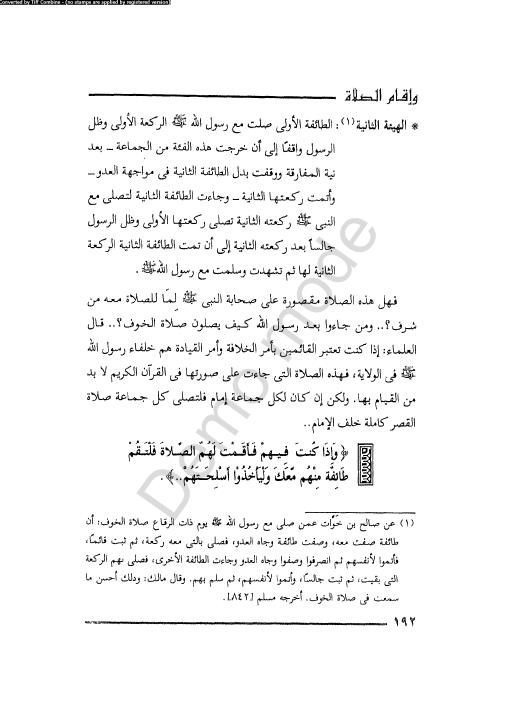 Converted by Tiff Combine - (no stamps are applied by registered version)
وإقام الصلاة
* الهيئة الثانية(١): الطائفة الأولى صلت مع رسول الله ﷺ الركعة الأولى وظل
الرسول واقفًا إلى أن خرجت هذه الفئة من الجماعة ــ بعد
نية المفارقة ووقفت بدل الطائفة الثانية فى مواجهة العدو ــ
وأتمت ركعتها الثانية ــ وجاءت الطائفة الثانية لتصلى مع
النبى ﷺ ركعته الثانية تصلى ركعتها الأولى وظل الرسول
جالساً بعد ركعته الثانية إلى أن تمت الطائفة الثانية الركعة
الثانية لها ثم تشهدت وسلمت مع رسول الله ﷺ .
فهل هذه الصلاة مقصورة على صحابة النبى ﷺ لِمَا للصلاة معه من
شرف؟.. ومن جاءوا بعد رسول الله كيف يصلون صلاة الخوف؟.. قال
العلماء: إذا كنت تعتبر القائمين بأمر الخلافة وأمر القيادة هم خلفاء رسول الله
ﷺ فى الولاية، فهذه الصلاة التى جاءت على صورتها فى القرآن الكريم لا بد
من القيام بها. ولكن إن كان لكل جماعة إمام فلتصلى كل جماعة صلاة
القصر كاملة خلف الإمام..
﴿ وَإِذَا كُنتَ فِيهِمْ فَأَقَمْتَ لَهُمُ الصَّلاةَ فَلْتَقُمْ
طَائِفَةٌ مِنْهُم مَّعَكَ وَلْيَأْخُذُوا أَسْلِحَتَهُمْ..﴾ .
(١) عن صالح بن خَوَّات عمن صلى مع رسول الله ﷺ يوم ذات الرقاع صلاة الخوف: أن
طائفة صفت معه، وصفت طائفة وجاه العدو، فصلى بالتى معه ركعة، ثم ثبت قائمًا،
فأتموا لأنفسهم ثم انصرفوا وصفوا وجاه العدو وجاءت الطائفة الأخرى، فصلى بهم الركعة
التى بقيت، ثم ثبت جالسًا، وأتموا لأنفسهم، ثم سلم بهم. وقال مالك: وذلك أحسن ما
سمعت فى صلاة الخوف. أخرجه مسلم [٨٤٢].
١٩٢
Demo mode